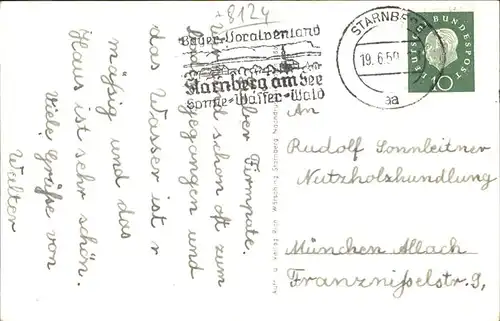 +8124
Bayer. Voralpenland
Starnberg am See
Sonne-Wasser-Wald
STARNBERG
19.6.59
aa
DEUTSCHE BUNDESPOST
10
Lieber Firmpate.
Wir sind schon oft zum
gegangen und
das Wasser ist
mäßig und das
Haus ist sehr schön.
Viele Grüße von
Walter
An
Rudolf Sonnleitner
Nutzholzhandlung
München Allach
Franznißelstr. 9,